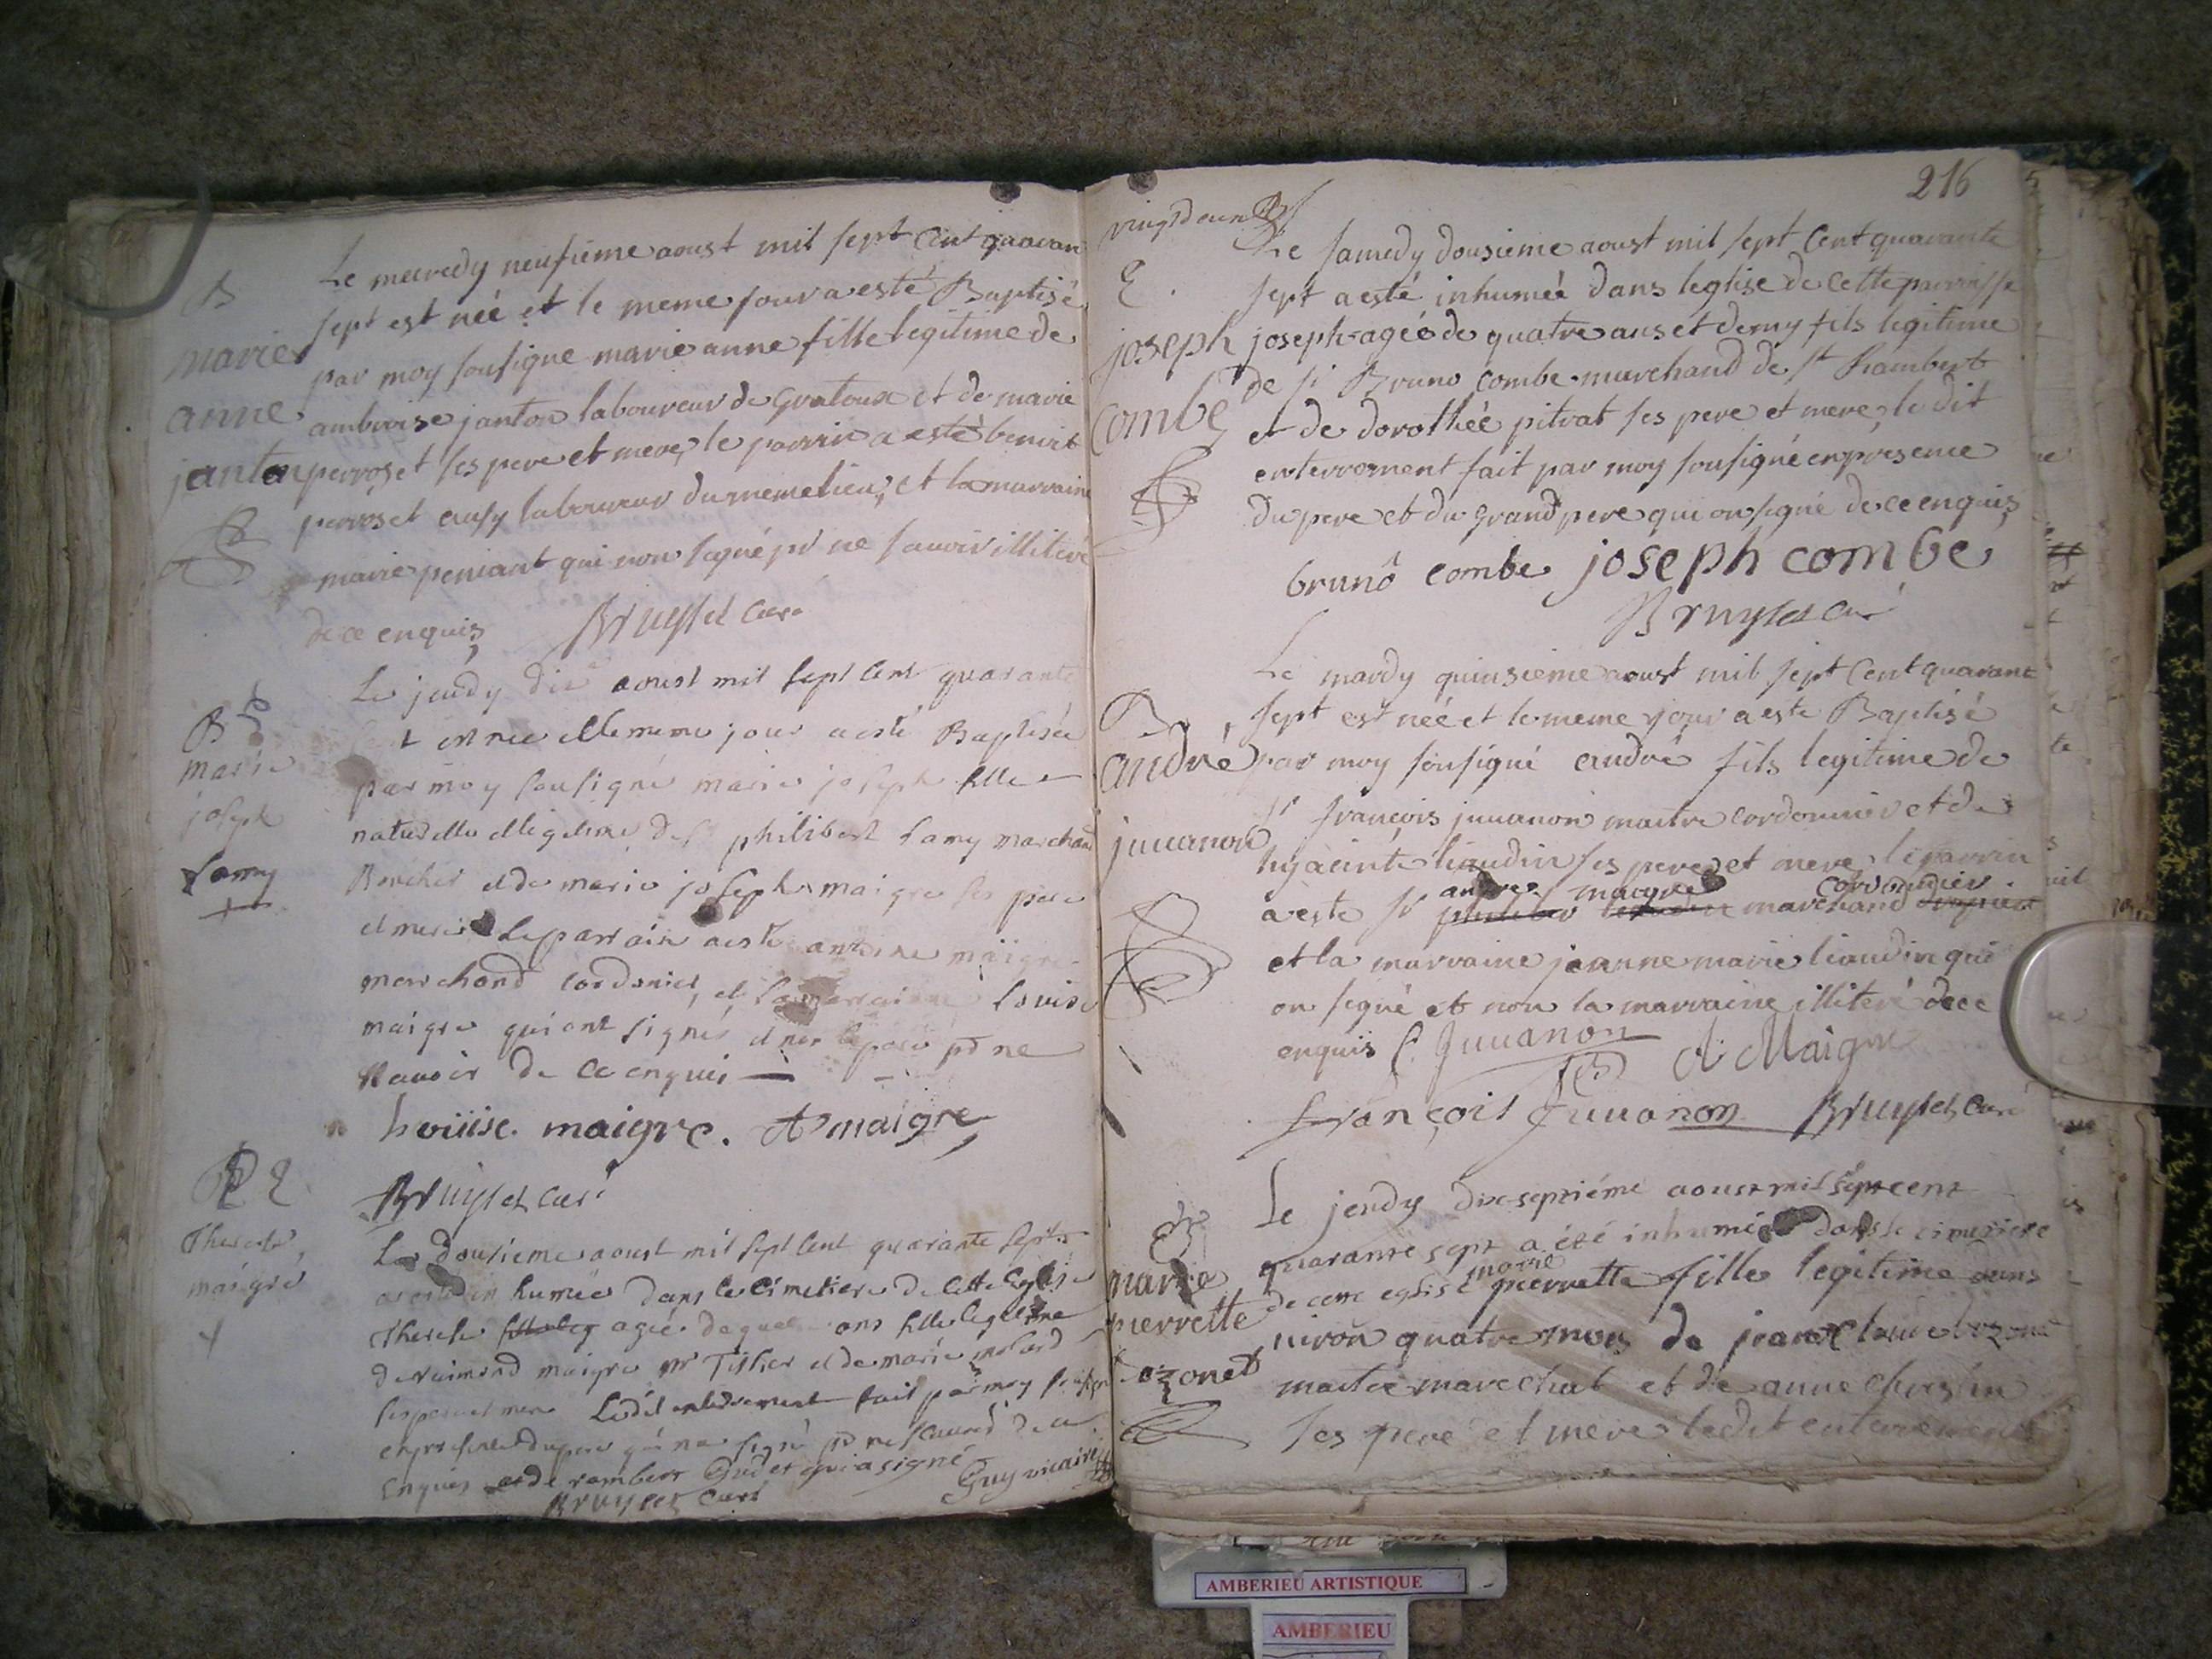 B
marie
anne
janton
Le mecredy neufieme aoust mil sept cent quaran
sept est néé et le meme jour a esté Baptisé
par moy sousigne marie anne fille legitime de
ambroise janton laboureur de gratoux et de marie
perroset ses pere et mere, le parrin a esté benoit
perroset ausy laboureur du meme lieu, et la marraine
marie peniant qui non signé pr ne savoir illiteré
de ce enquis Bruyset curé
B
marie
joseph
Lamy
Le jeudy dix aoust mil sept cent quarante
sept est née et le meme jour a esté Baptisée
par moy sousigné marie joseph fille
naturelle et legitime de Sr philibert Lamy marchand
Boucher et de marie joseph maigre ses pere
et mere Le parrain a esté antoine maigre
marchand cordonier, et la marraine Louise
maigre qui ont signés et non le pere pr ne
scavoir de ce enquis
Loüise. maigre. A maigre
Bruyset curé
E
Therese
maigre
Le dousieme aoust mil sept cent quarante sept
a esté inhumée dans le cimetiere de cette Eglise
Therese agée de ans fille legitime
de raimond maigre Mr Tissier et de marie
ses pere et mere Ledit enterrement fait par moy
en presence du pere qui na signé pr ne scavoir de ce
enquis et de rambert qui a signé
Bruyset curé Guy vicaire
216
vingt deux
E
joseph
combe
Le samedy dousieme aoust mil sept cent quarante
sept a esté inhumeé dans leglise de cette parroisse
joseph agéé de quatre ans et demy fils legitime
de sr Bruno Combe marchand de st Rambert
et de dorothéé pitrat ses pere et mere, le dit
enterrement fait par moy sousigné en presence
du pere et du grand pere qui on signé de ce enquis
brunô combe joseph combe
Bruyset curé
B
andré
juuanon
Le mardy quinsieme aoust mil sept cent quarant
sept est néé et le meme jour a este Baptisé
par moy sousigné andré fils legitime de
sr françois juuanon maitre cordonnier et de
hyacinte liaudin ses pere et mere, le parrin
andre maigre cordonnier
a este sr marchand
et la marraine jeanne marie liaudin qui
on signé et non la marraine illiteré de ce
enquis C. Juuanon A Maigre
françois Juuanon Bruyset curé
E
marie
pierrette
bozonet
Le jeudy dix septiéme aoust mil sept cent
quarante sept a été inhumée dans le cimetiere
marie
de cette eglise pierrette fille legitime dans
niron quatre mois de jean claude bozonet
maitre marechal et de anne chrestin
ses pere et mere ledit enterrement
AMBERIEU ARTISTIQUE
AMBERIEU